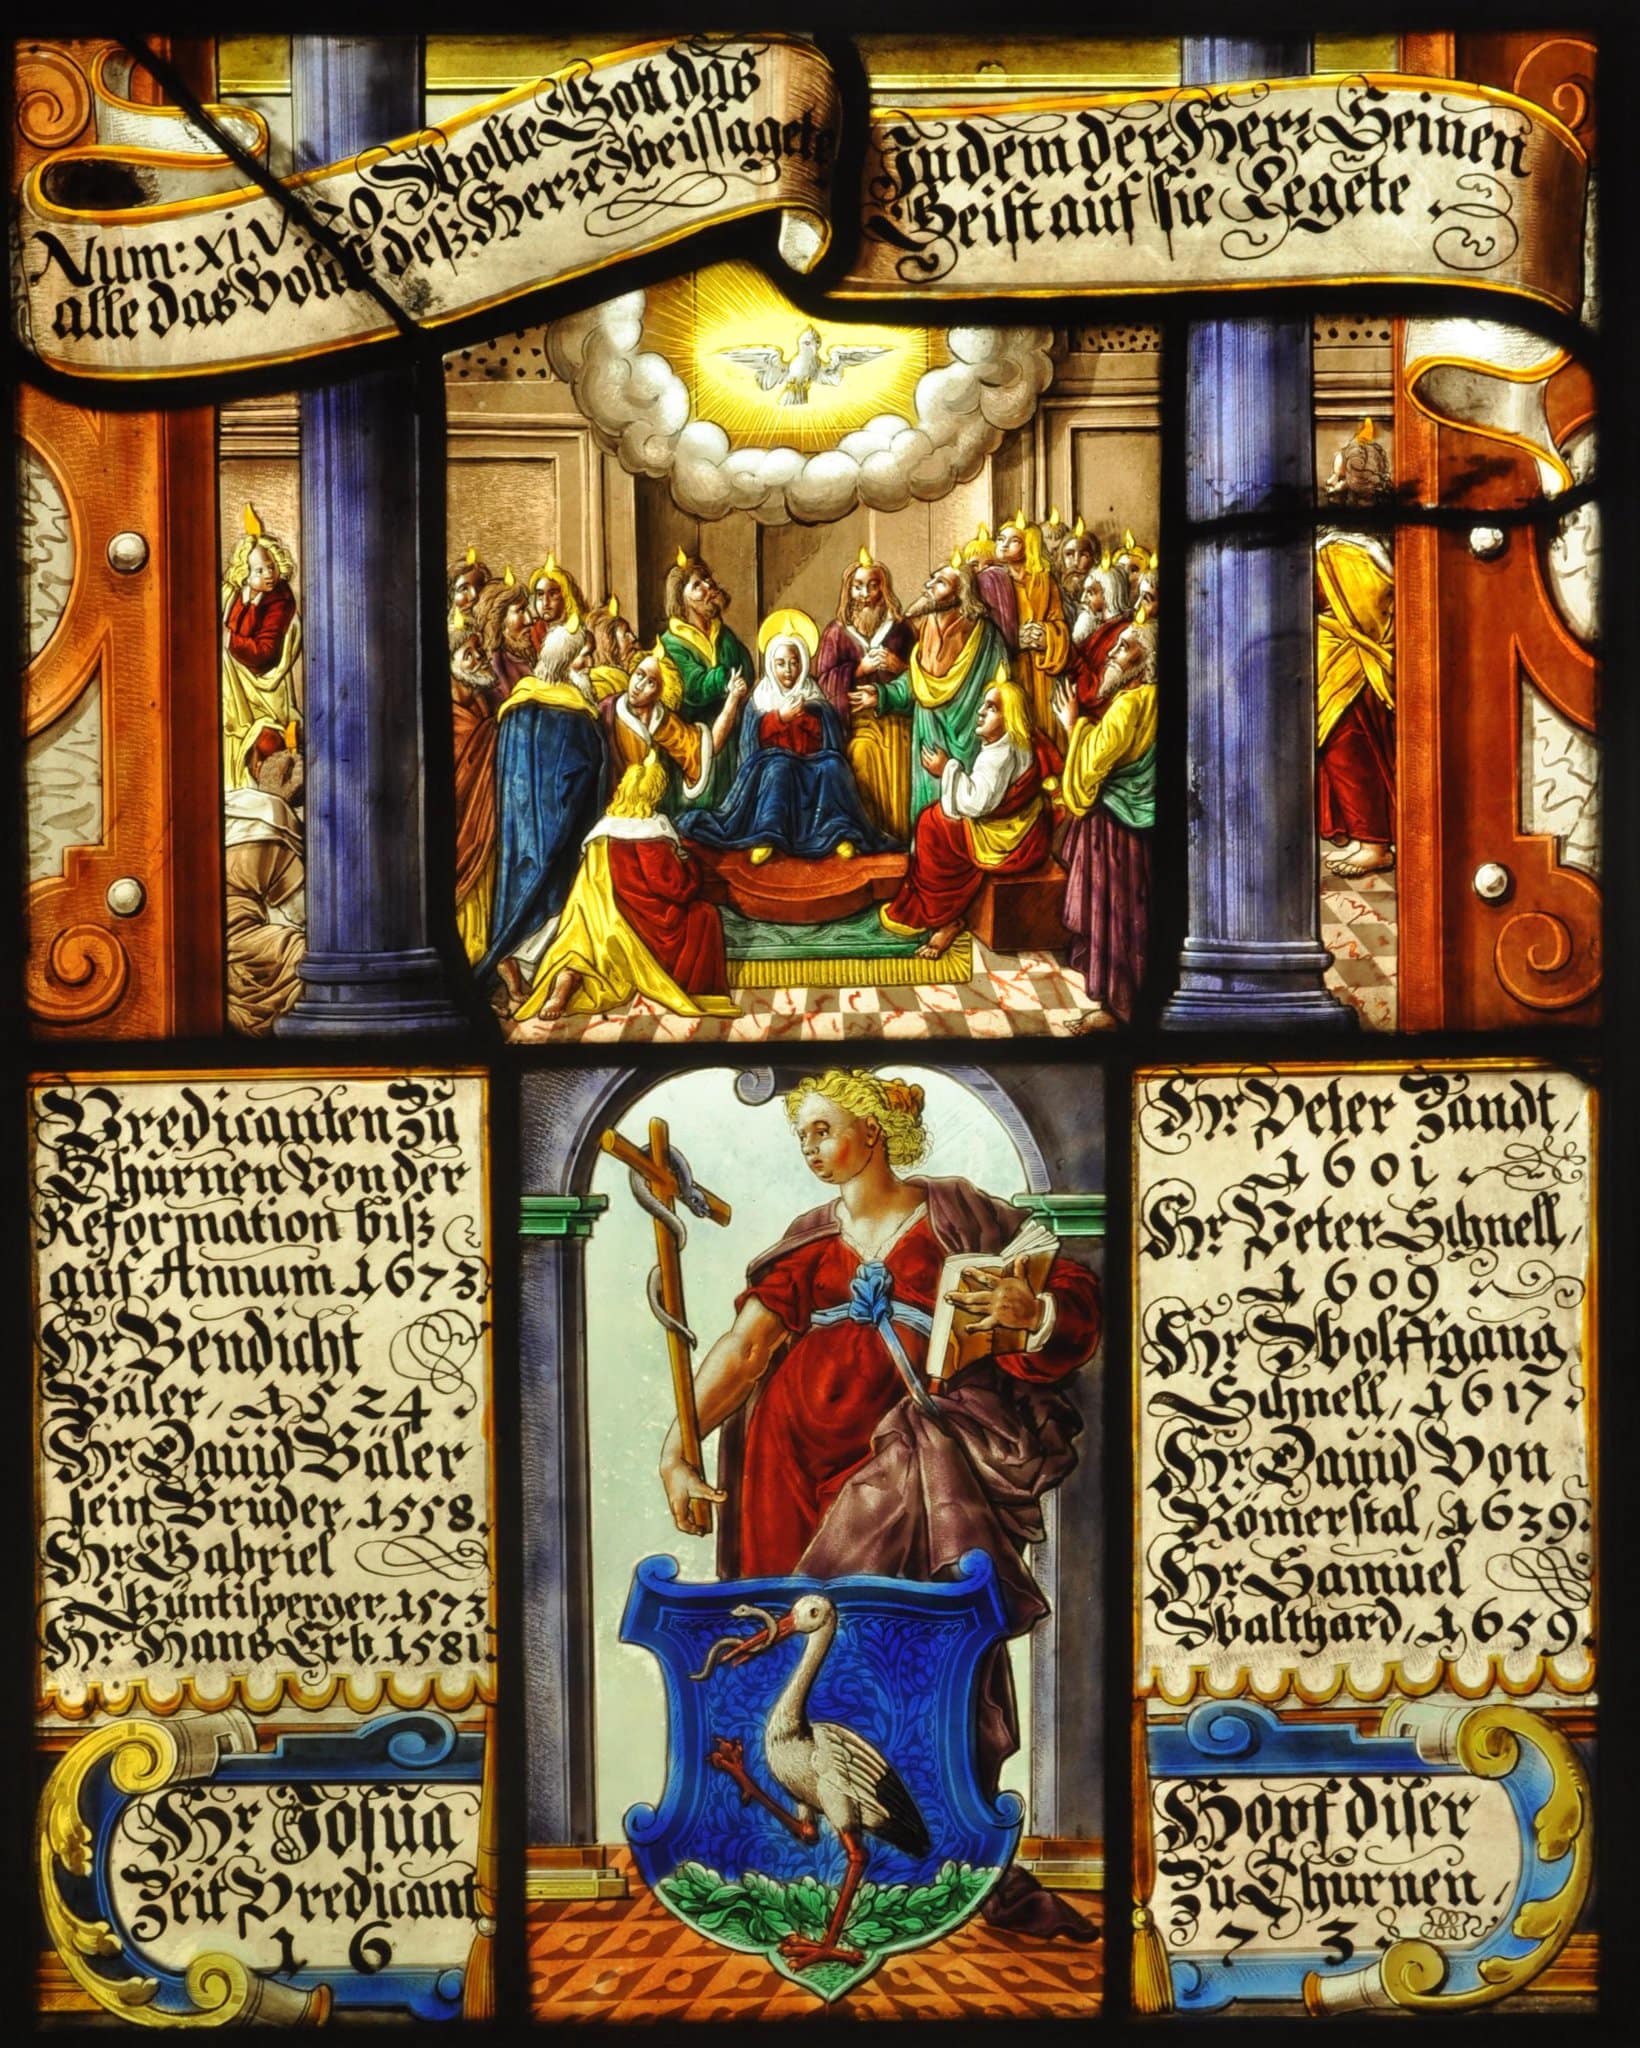 Num: XI, V. 29. Wolte Gott das
alle das Volck deß Herren weissagete
Indem der Herr Seinen
Geist auf sie Legete.
Predicanten Zů
Thürnen Von der
Reformation biß
auf Annum 1673.
Hr. Bendicht
Bäler, 1524.
Hr. David Bäler
sein Brůder, 1558.
Hr. Gabriel
Hüntisperger, 1573
Hr. Hans Erb, 1581.
Hr. Peter Zandt,
1601.
Hr. Peter Schnell,
1609.
Hr. Wolffgang
Schnell, 1617.
Hr. David Von
Römerstal, 1639.
Hr. Samůel
Walthard, 1659.
Hr. Josůa Hopf diser
Zeit Predicant Zů Thurnen,
16 73.